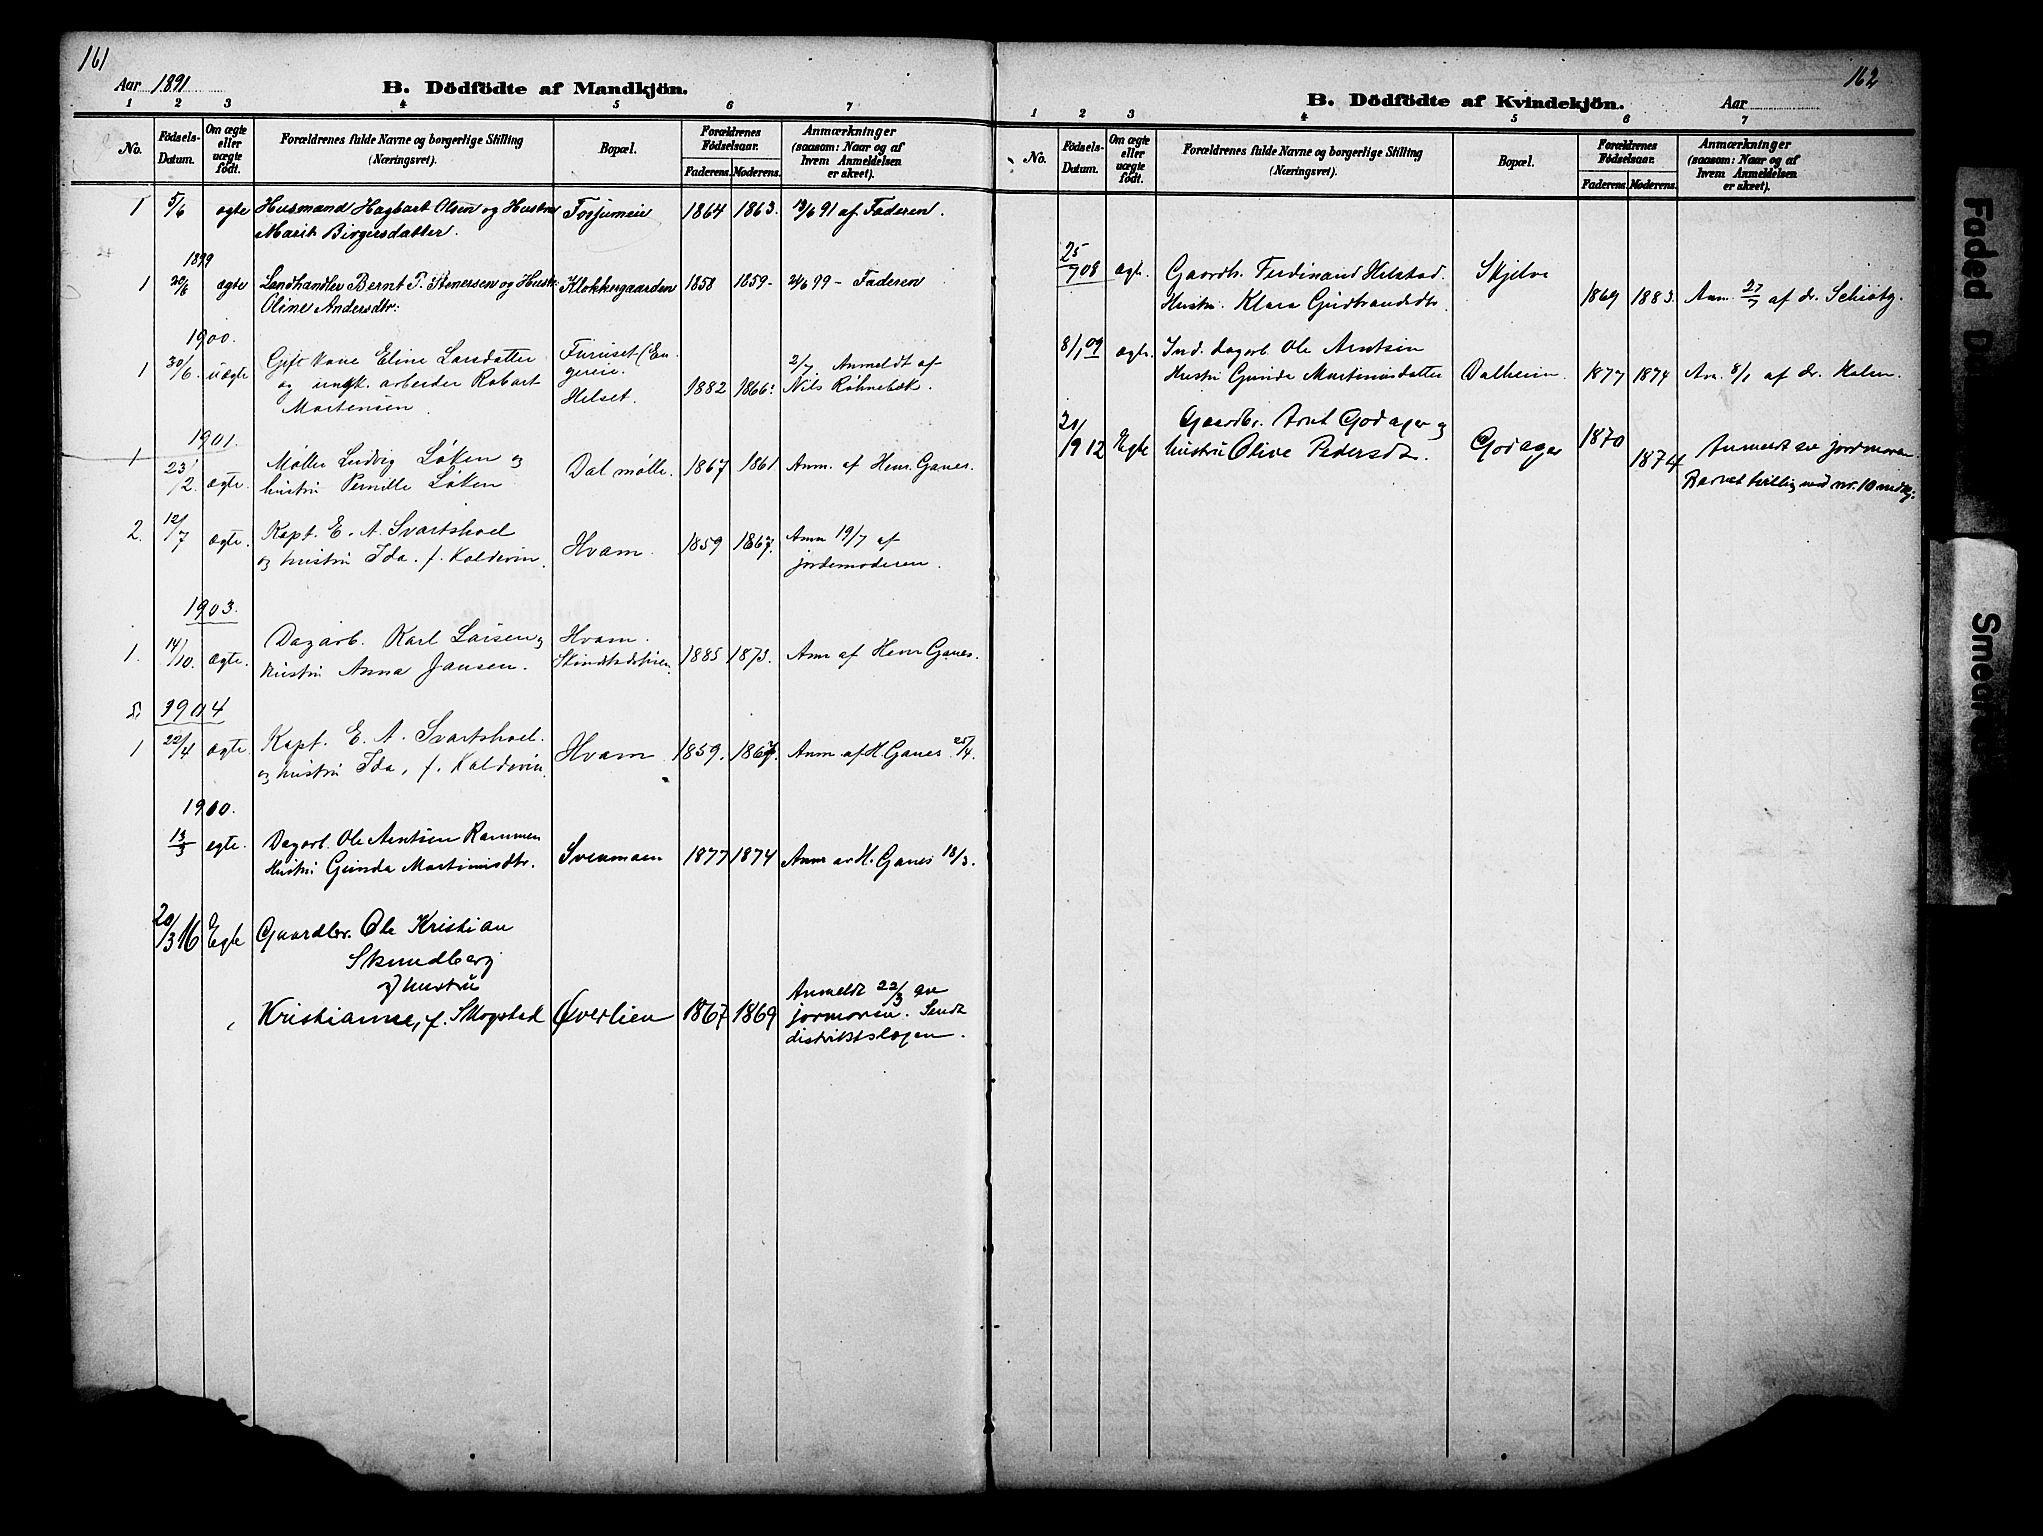 161
Aar 1891
B. Dödfödte af Mandkjön.
1 2 3 4 5 6 7
No.
Födsels-Datum.
Om ægte eller uægte födt.
Forældrenes fulde Navne og borgerlige Stilling
(Næringsvei).
Bopæl.
Forældrenes Födselsaar.
Faderens. Moderens.
Anmærkninger
(saasom: Naar og af
hvem Anmeldelsen
er skeet).
1 5/6 ægte Husmand Hagbart Olsen og Hustru 1864 1863. 13/6 91 af Faderen.
Marit Birgersdatter.
1899
1 20/6 ægte Landhandler Bernt P. Stenersen og Hustr. Klokkergaarden 1858 1859 - 24/6 99 - Faderen
Oline Andersdtr:
1900.
1 30/6. uægte Gift Kone Eline Larsdatter Furuset (En
og ungk. arbeider Robart gereie. 1882 1866: 2/7. Anmeldt af
Mortensen. Helset. Nils Røhnebæk.
1901.
1 23/2. ægte. Møller Ludvig Løken og Dal mølle. 1867 1861 Anm. af Henr. Ganes.
hustru Pernille Løken
2. 12/7 ægte. Kapt. E. A. Svartshoel Hvam. 1859 1867. Anm 19/7 af
og hustru Ida. f. Kaldevin. jordemoderen.
1903.
1. 14/10. ægte. Dagarb. Karl Larsen og Hvam. 1885 1873. Anm af Henr Ganes.
hustru Anna Jansen.
1904
1 22/4 ægte. Kapt. E. A. Svartshoel. Hvam 1859. 1867. Anm. af H. Ganes 25/4.
og hustru Ida, f. Kaldevin.
1910.
13/3 egte. Dagarb. Ole Arntsen Rammen Svenmoen 1877 1874 Anm av H. Ganes 18/3.
Hustru Gunda Martinusdtr.
20/3 16 Egte Gaardbr. Ole Kristian
Skundberg
og hustru
Kristianne, f. Skogstad Øverlien 1867 1869 Anmeldt 22/3 av
jormoren. Sendt
distriktslægen.
162
B. Dödfödte af Kvindekjön.
Aar
1 2 3 4 5 6 7
No.
Födsels-Datum.
Om ægte eller uægte födt.
Forældrenes fulde Navne og borgerlige Stilling
(Næringsvei).
Bopæl.
Forældrenes Födselsaar.
Faderens. Moderens.
Anmærkninger
(saasom: Naar og af
hvem Anmeldelsen
er skeet).
25/7 08 ægt. Gaardb. Ferdinand Helstad. Skjelva
Hustru Klara Gudbrandsdtr. 1869 1883. Anm 27/7 af dr. Schiøtz.
8/1 09 ægt. Ind. dagarb. Ole Arntsen
Hustru Gunda Martinusdatter Dalheim. 1877 1874 An. 8/1 af dr. Holm.
21/9 12 Egte Gaardbr. Arnt Godager og
hustru Olive Pedersdtr. Godager 1870 1874 Anmeldt av jordmoren
Barnet tvilling med nr. 10
Faded D
Smedre